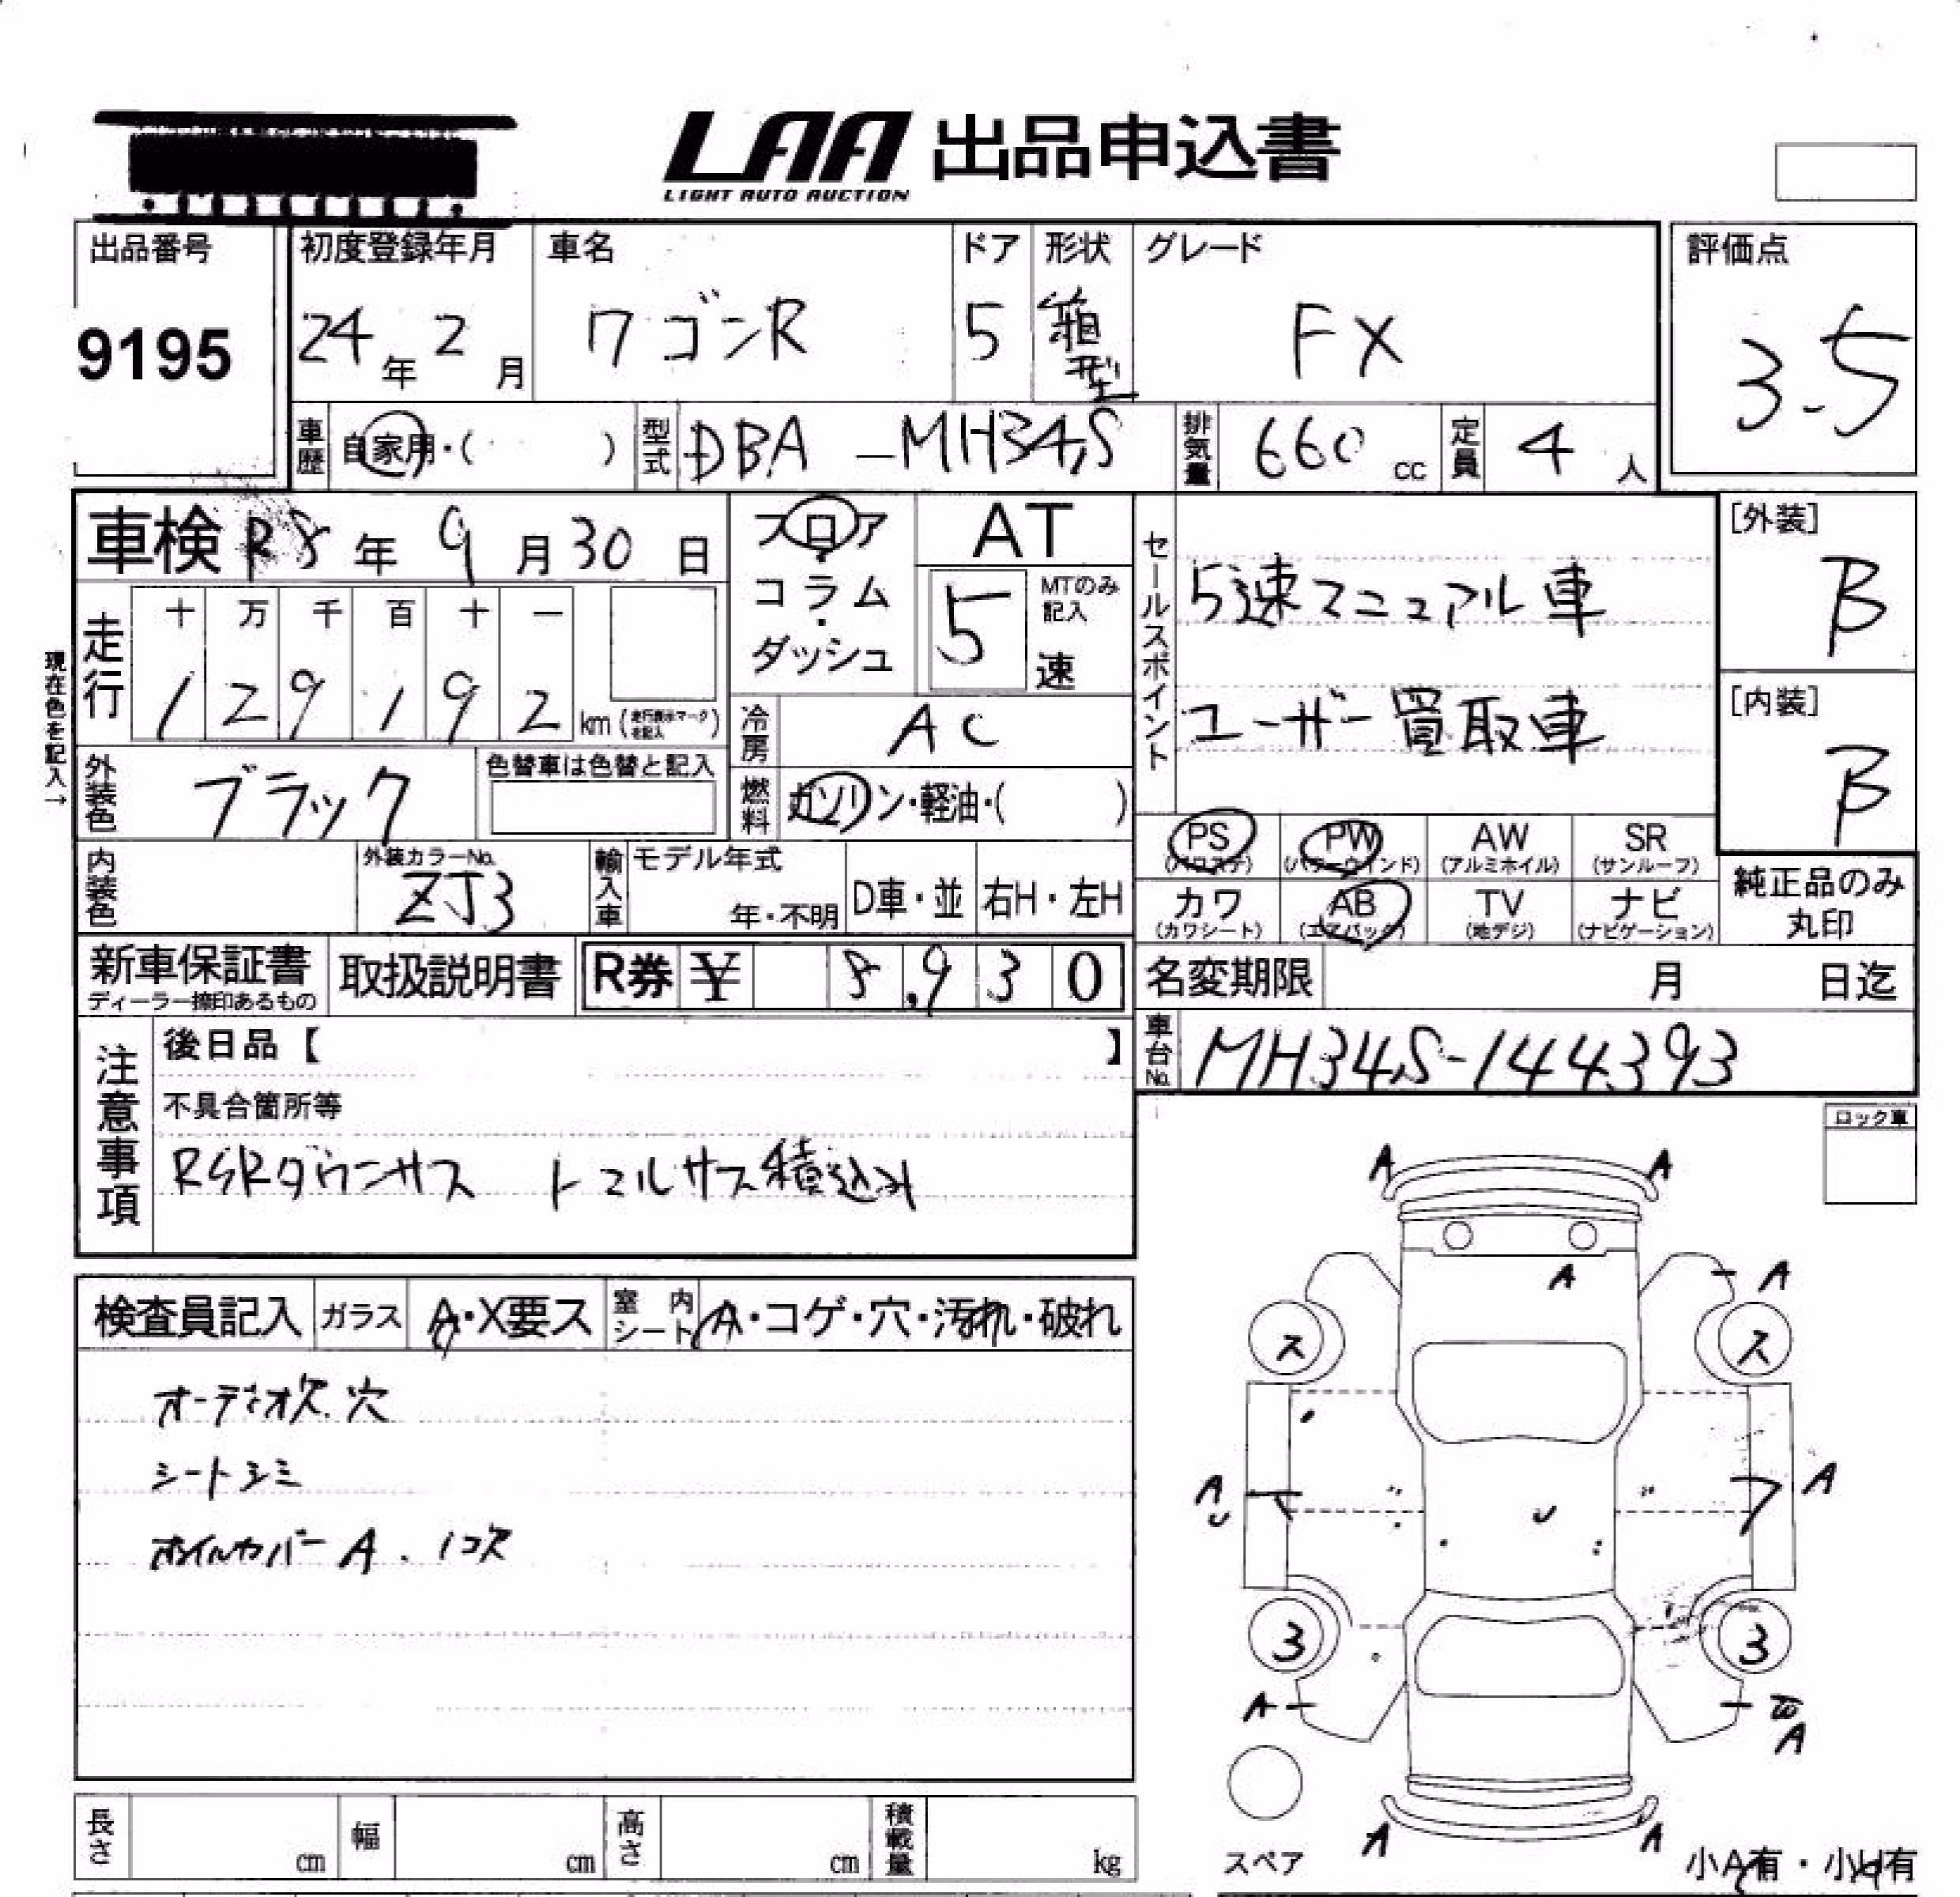 LAA 出品申込書
LIGHT AUTO AUCTION
出品番号
9195
初度登録年月
24年 2月
車名
ワゴンR
ドア
5
形状
箱型
グレード
FX
評価点
3.5
車歴
自家用・( )
型式
DBA-MH34S
排気量
660 cc
定員
4 人
車検 R8年 9月30日
フロア・コラム・ダッシュ
AT
5
MTのみ記入
速
セールスポイント
5速マニュアル車
ユーザー買取車
[外装]
B
[内装]
B
現在色を記入→
走行
十 万 千 百 十 一
1 2 9 1 9 2 km (走行表示マークを記入)
冷房
AC
外装色
ブラック
色替車は色替と記入
燃料
ガソリン・軽油・( )
PS (パワステ)
PW (パワーウインド)
AW (アルミホイル)
SR (サンルーフ)
カワ (カワシート)
AB (エアバック)
TV (地デジ)
ナビ (ナビゲーション)
純正品のみ丸印
内装色
外装カラーNo.
ZJ3
輸入車
モデル年式
年・不明
D車・並
右H・左H
新車保証書
ディーラー捺印あるもの
取扱説明書
R券 ¥ 8,930
名変期限 月 日迄
車台No.
MH34S-144393
注意事項
後日品【 】
不具合箇所等
RSRダウンサス ノーマルサス積込み
ロック車
検査員記入
ガラス
A・X要ス
室内シート
A・コゲ・穴・汚れ・破れ
オーディオ欠.穴
シートシミ
ホイルカバー A . 1コ欠
A A
A A
ス ス
A A
3 3
A A
A A
スペア
小A有・小U有
長さ cm
幅 cm
高さ cm
積載量 kg